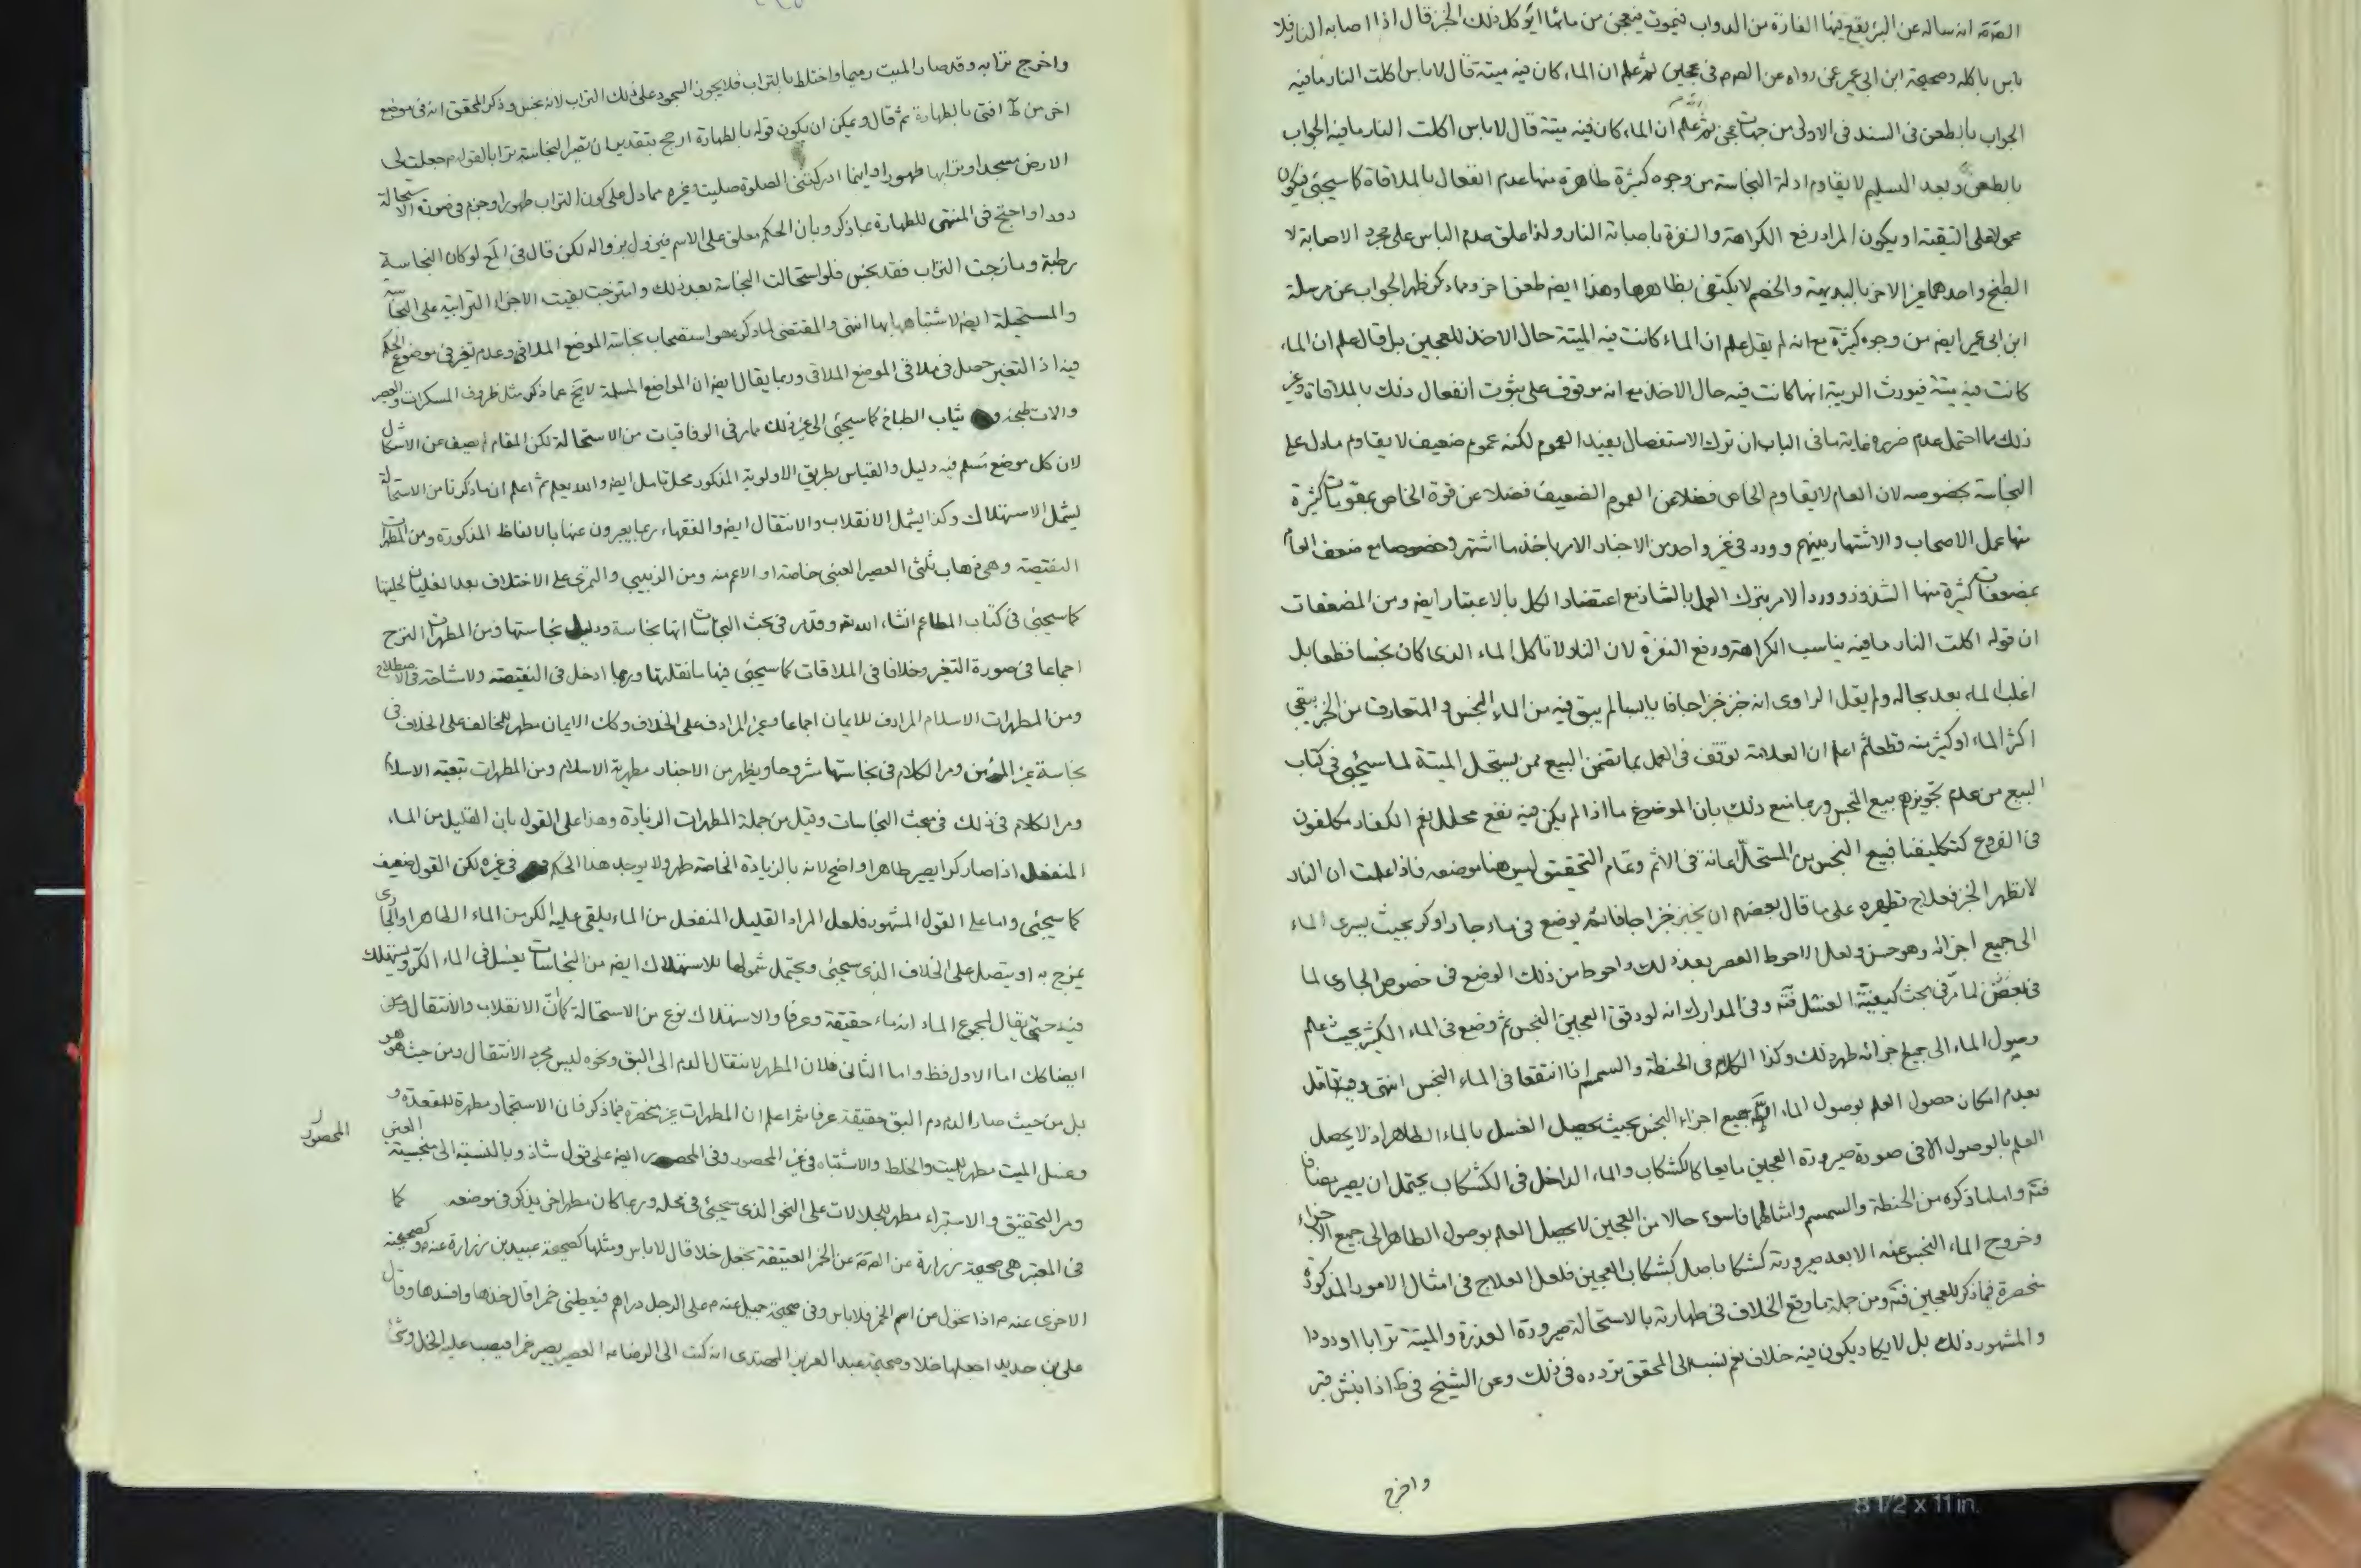 الصّٰدق انه ساله عن البئر يقع فيها الفارة من الدواب فيموت فيعجن من مائها ايؤكل ذلك الخبز قال اذا اصابه النار فلا
باس باكله وصحيحة ابن ابى عمير عمن رواه عن الصٰدق فى عجين ثم علم ان الماء كان فيه ميتة قال لا باس اكلت النار ما فيه
الجواب بالطعن فى السند فى الاولى من جهات ثم علم ان الماء كان فيه ميتة قال لا باس اكلت النار ما فيه الجواب
بالطعن وبعد التسليم لا يقاوم ادلة النجاسة من وجوه كثيرة ظاهرة منها عدم انفعال بالملاقاة كما سيجئى فيكون
محمولا على التقية او يكون المراد رفع الكراهة والنفرة باصابة النار ولذا علق عدم الباس على مجرد الاصابة لا
الطبخ واحدهما غير الاخر بالبديهة والخصم لا يكتفى بظاهرها وهذا ايضا طعن اخر ومما ذكر ظهر الجواب عن مرسلة
ابن ابى عمير ايضا من وجوه كثيرة مع انه لم يقل علم ان الماء كانت فيه الميتة حال الاخذ للعجين بل قال علم ان الماء
كانت فيه ميتة فيورث الريبة انها كانت فيه حال الاخذ مع انه موقوف على ثبوت انفعال ذلك بالملاقاة وغير
ذلك مما احتمل عدم ضرره غاية ما فى الباب ان ترك الاستفصال يفيد العموم لكنه عموم ضعيف لا يقاوم ما دل على
النجاسة بخصوصه لان العام لا يقاوم الخاص فضلا عن العموم الضعيف فضلا عن قوة الخاص بمقويات كثيرة
منها عمل الاصحاب والاشتهار بينهم وورد فى غير واحد من الاخبار الامر باخذ ما اشتهر وخصوصا مع ضعف العام
بمضعفات كثيرة منها الشذوذ وورد الامر بترك العمل بالشاذ مع اعتضاد الكل بالاعتبار ايضا ومن المضعفات
ان قوله اكلت النار ما فيه يناسب الكراهة ورفع النفرة لان النار لا تاكل الماء الذى كان نجسا قطعا بل
اغلب الماء بعد بحاله ولم يقل الراوى انه خبز خبزا جافا يابسا لم يبق فيه من الماء النجس والمتعارف من الخبز يبقى
اكثر الماء او كثير منه قطعا ثم اعلم ان العلامة توقف فى العمل بما تضمن البيع ممن يستحل الميتة لما سيجئى فى كتاب
البيع من عدم تجويزهم بيع النجس وربما منع ذلك بان الموضوع ما اذا لم يكن فيه نفع محلل نعم الكفار مكلفون
فى الفروع كتكليفنا فبيع النجس من المستحل اعانة فى الاثم وتمام التحقيق ليس هنا موضعه فاذا علمت ان النار
لا تطهر الخبز فعلاج تطهيره على ما قال بعضهم ان يخبز خبزا جافا ثم يوضع فى ماء جار او كر بحيث يسرى الماء
الى جميع اجزائه وهو حسن ولعل الاحوط العصر بعد ذلك واحوط من ذلك الوضع فى خصوص الجارى لما
فى بعض لما مر فى بحث كيفية الغسل فتٓه وفى المدارك انه لو دقق العجين النجس ثم وضع فى الماء الكثير بحيث علم
وصول الماء الى جميع اجزائه طهر ذلك وكذا الكلام فى الحنطة والسمسم اذا انتقعا فى الماء النجس انتهى وفيه تامل
بعدم امكان حصول العلم بوصول الماء الى جميع اجزاء النجس بحيث يحصل الغسل بالماء الطاهر اذ لا يحصل
العلم بالوصول الا فى صورة صيرورة العجين مايعا كالكشكاب والماء الداخل فى الكشكاب يحتمل ان يصير مضافا
فتٓه واما ما ذكره من الحنطة والسمسم وامثالهما فاسوء حالا من العجين لا يحصل العلم بوصول الطاهر الى جميع الاجزاء
وخروج الماء النجس عنه الا بعد صيرورته كشكابا مثل كشكاب العجين فلعل العلاج فى امثال الامور المذكورة
منحصرة فيما ذكر للعجين فتٓه ومن جملة ما وقع الخلاف فى طهارته بالاستحالة صيرورة العذرة والميتة ترابا او دودا
والمشهور ذلك بل لا يكاد يكون فيه خلاف نعم نسب الى المحقق تردده فى ذلك وعن الشيخ فى ط اذا نبش قبر
واخرج
واخرج ترابه وقد صار الميت رميما واختلط بالتراب فلا يجوز السجود على ذلك التراب لانه نجس وذكر المحقق انه فى موضع
اخر من ط افتى بالطهارة ثم قال ويمكن ان يكون قوله بالطهارة ارجح بتقدير ان تصير النجاسة ترابا لقوله جعلت لى
الارض مسجدا وترابها طهورا واينما ادركتنى الصلوة صليت وغيره مما دل على كون التراب طهورا وجزم فى صورة الاستحالة
دودا واحتج فى المنتهى للطهارة بما ذكر وبان الحكم معلق على الاسم فيزول بزواله لكن قال فى المع لو كان النجاسة
رطبة ومازجت التراب فقد نجس فلو استحالت النجاسة بعد ذلك وامتزجت بقيت الاجزاء الترابية على النجاسة
والمستحيلة ايضا لاشتباهها بها انتهى والمقتضى لما ذكره هو استصحاب نجاسة الموضع الملاقى وعدم تغير فى موضوع الحكم
فيه اذ التغير حصل فى ملاقى الموضع الملاقى وربما يقال ايضا ان المواضع المسلمة لا يخ عما ذكر مثل ظروف المسكرات والعصير
والات طبخه و ثياب الطباخ كما سيجئى الى غير ذلك مما مر فى الوفاقيات من الاستحالة لكن المقام لم يصف عن الاشكال
لان كل موضع مسلم فيه دليل والقياس بطريق الاولوية المذكور محل تامل ايضا والله يعلم ثم اعلم ان ما ذكرنا من الاستحالة
يشمل الاستهلاك وكذا يشمل الانقلاب والانتقال ايضا والفقهاء ربما يعبرون عنها بالالفاظ المذكورة ومن المطهرات
النقيصة وهى ذهاب ثلثى العصير العنبى خاصة او الاعم منه ومن الزبيبى والتمرى على الاختلاف بعد الغليان لحليتها
كما سيجئى فى كتاب المطاعم انشاء الله تعٰ وقد مر فى بحث النجاسات انها نجاسة ودليل نجاستها ومن المطهرات النزح
اجماعا فى صورة التغير وخلافا فى الملاقات كما سيجئى فيها ما نقلتها وربما ادخل فى النقيصة ولا مشاحة فى الاصطلاح
ومن المطهرات الاسلام المرادف للايمان اجماعا وغير المرادف على الخلاف وكك الايمان مطهر للمخالف على الخلاف فى
نجاسة غير المؤمن ومر الكلام فى نجاستها مشروحا ويظهر من الاخبار مطهرية الاسلام ومن المطهرات تبعية الاسلام
ومر الكلام فى ذلك فى مبحث النجاسات وقيل من جملة المطهرات الزيادة وهذا على القول بان القليل من الماء
المنفعل اذا صار كرا يصير طاهرا واضح لانه بالزيادة الخاصة طهر ولا يوجد هذا الحكم فى غيره لكن القول ضعيف
كما سيجئى واما على القول المشهور فلعل المراد القليل المنفعل من الماء يلقى عليه الكر من الماء الطاهر او الجارى
يمزج به او يتصل على الخلاف الذى سيجئى ويحتمل شمولها للاستهلاك ايضا من النجاسات يغسل فى الماء الكر ويستهلك
فيه حتى يقال لمجموع الماء انه ماء حقيقة وعرفا والاستهلاك نوع من الاستحالة كما ان الانقلاب والانتقال
ايضا كك اما الاول فظ واما الثانى فلان المطهر لانتقال الدم الى البق ونحوه ليس مجرد الانتقال ومن حيث هو هو
بل من حيث صار الدم دم البق حقيقة عرفا ثم اعلم ان المطهرات غير منحصرة فيما ذكر فان الاستجمار مطهرة للمقعدة و
وغسل الميت مطهر للميت والخلط والاشتباه فى غير المحصور وفى المحصور ايضا على قول شاذ وبالنسبة الى منجسيته
المحصور
ومر التحقيق والاستبراء مطهر للجلالات على النحو الذى سيجئى فى محله وربما كان مطهر اخر يذكر فى موضعه كما
فى المعتبر هى صحيحة زرارة عن الصٰدق عن الخمر العتيقة تجعل خلا قال لا باس ومثلها كصحيحة عبيد بن زرارة عنه وصحيحته
الاخرى عنه م اذا تحول من اسم الخمر فلا باس وفى صحيحة جميل عنه م على الرجل دراهم فيعطينى خمرا قال خذها وافسدها وقال
على بن حديد اجعلها خلا وصحيحة عبد العزيز المهتدى انه كتب الى الرضا م العصير يصير خمرا فيصب عليه الخل وشئ